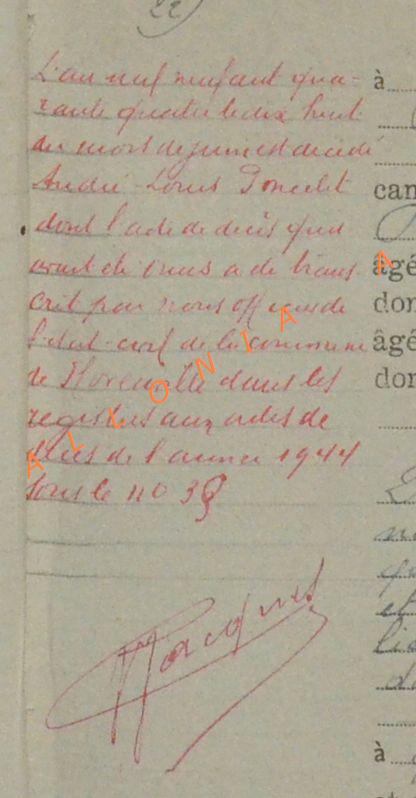 22)
L'an mil neuf cent qua-
rante quatre le dix huit
du mois de juin est décédé
André Louis Poncelet
dont l'acte de décès
avant été a été trans-
crit par nous officier de
l'état-civil de la commune
de Floreville dans les
registres aux actes de
décès de l'année 1944
sous le no 38
Jacques
ALLONIA
à
can
âgé
dom
âgé
dom
à